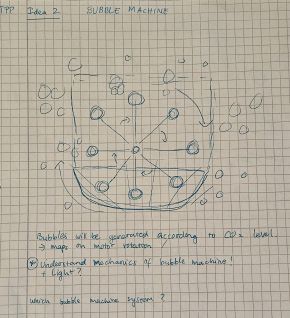 TPP Idea 2 BUBBLE MACHINE
Bubbles will be generated according to CO2 level
→ maps on motor rotation
* Understand mechanics of bubble machine!
+ Light?
Which bubble machine system?